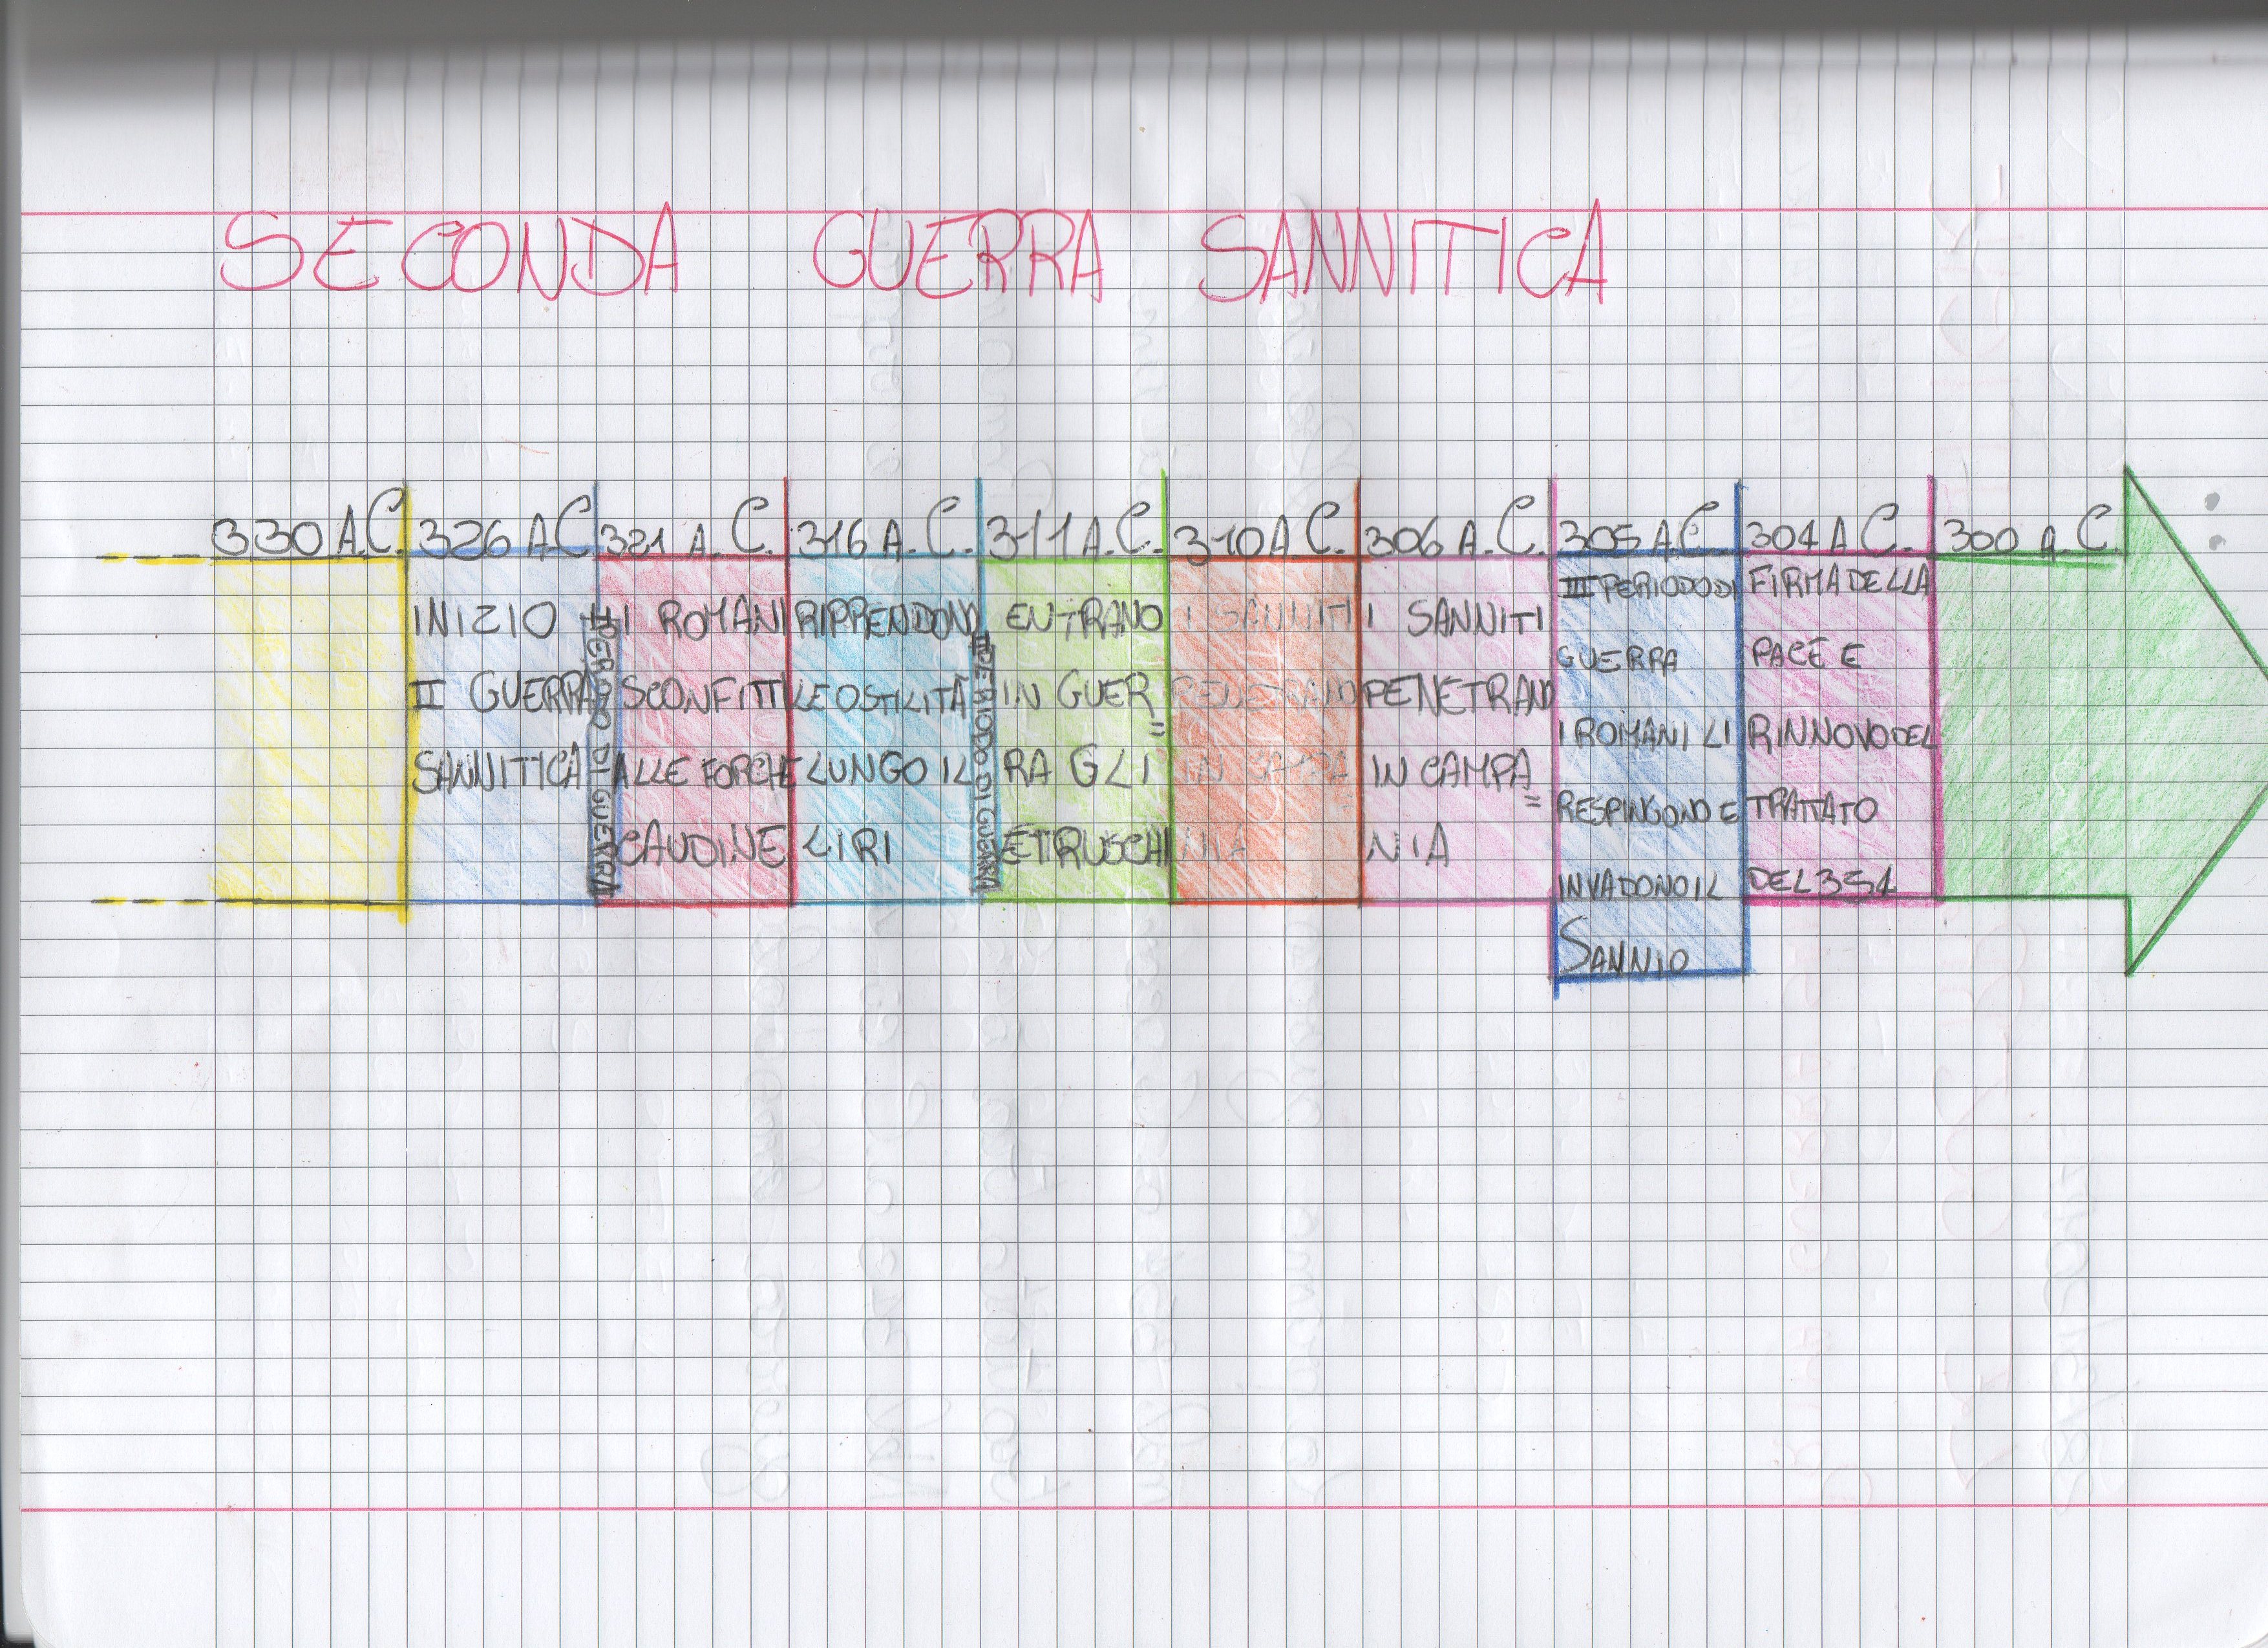 SECONDA GUERRA SANNITICA
330 A.C.
326 A.C.
321 A.C.
316 A.C.
311 A.C.
310 A.C.
306 A.C.
305 A.C.
304 A.C.
300 A.C.
INIZIO
II GUERRA
SANNITICA
PERIODO DI GUERRA
I ROMANI
SCONFITTI
ALLE FORCHE
CAUDINE
RIPPENDONO
LE OSTILITÀ
LUNGO IL
LIRI
PERIODO DI GUERRA
ENTRANO
IN GUER=
RA GLI
ETRUSCHI
I SANNITI
PENETRANO
IN CAMPA
NIA
I SANNITI
PENETRANO
IN CAMPA=
NIA
III PERIODO DI
GUERRA
I ROMANI LI
RESPINGONO E
INVADONO IL
SANNIO
FIRMA DELLA
PACE E
RINNOVO DEL
TRATTATO
DEL 354